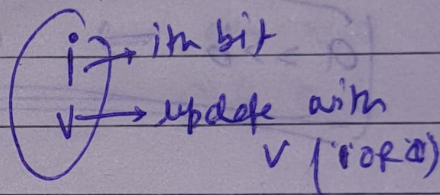 i → ith bit
v → update with
v (1 OR 0)